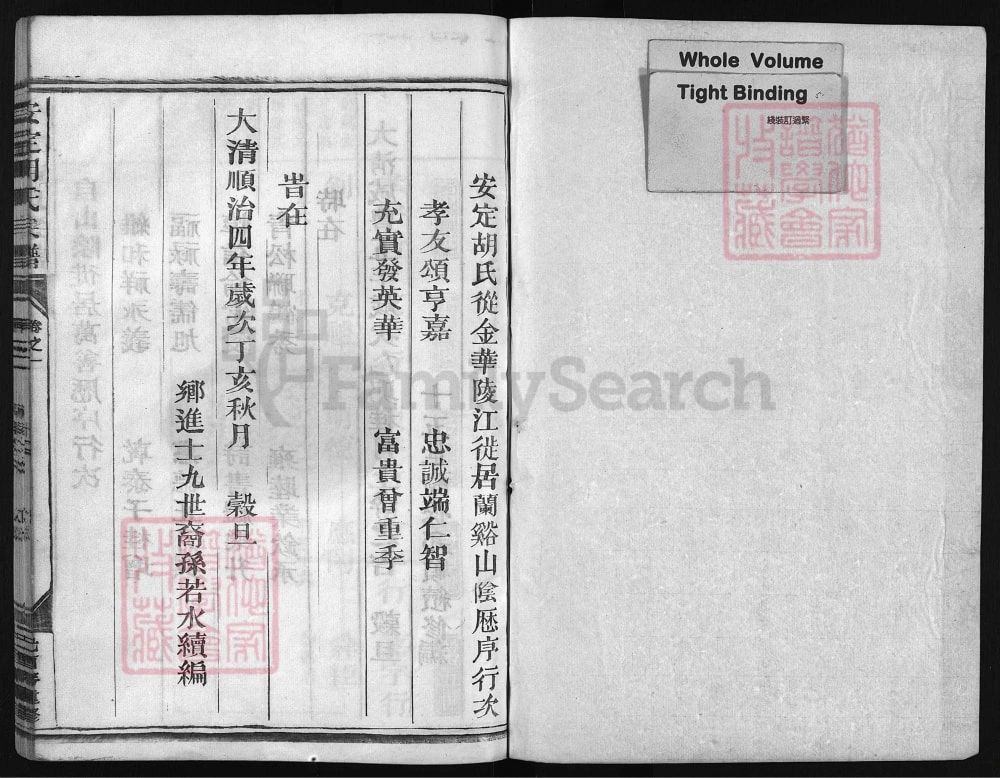 Whole Volume
Tight Binding
綫裝訂過緊
安定胡氏從金華陵江徙居蘭谿山陰歷序行次
孝友頌亨嘉 忠誠端仁智
充實發英華 富貴曾重季
旹在
大清順治四年歲次丁亥秋月 穀旦
鄉進士九世裔孫若水續編
安定胡氏宗譜
卷之一
FamilySearch